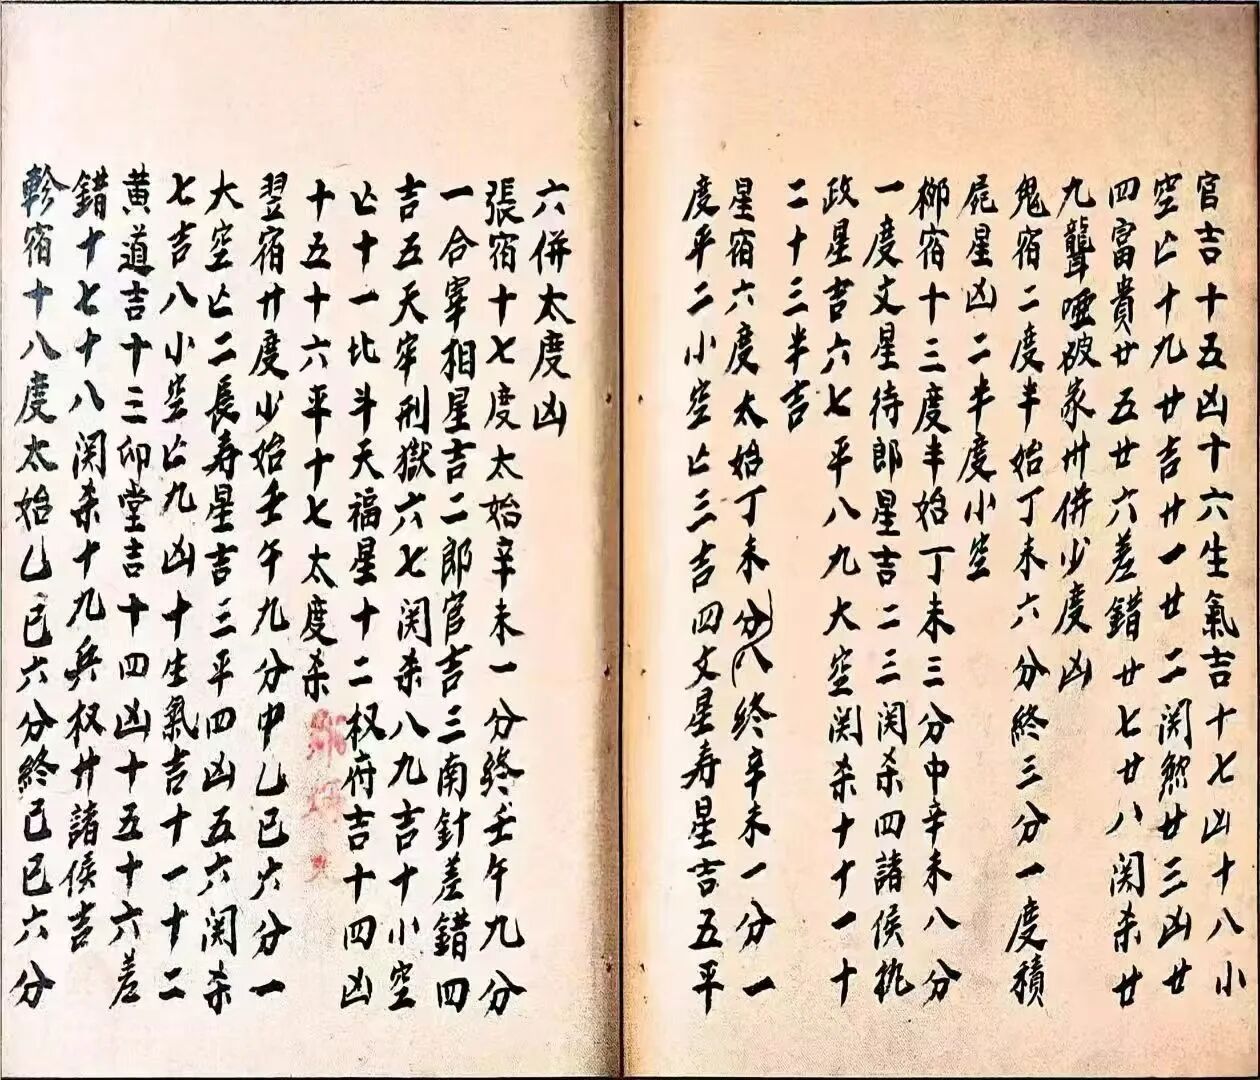 官吉十五凶十六生氣吉十七凶十八小
空亡十九廿吉廿一廿二関煞廿三凶廿
四富貴廿五廿六差錯廿七廿八関杀廿
九聾啞破家卅併少度凶
鬼宿二度半始丁未六分終三分一度積
屍星凶二半度小空
柳宿十三度半始丁未三分中辛未八分
一度文星待郎星吉二三関杀四諸侯執
政星吉六七平八九大空関杀十十一十
二十三半吉
星宿六度太始丁未分八終辛未一分一
度平二小空亡三吉四文星寿星吉五平
六併太度凶
張宿十七度太始辛未一分終壬午九分
一合宰相星吉二郎官吉三南針差錯四
吉五天牢刑獄六七関杀八九吉十小空
亡十一比斗天福星十二权府吉十四凶
十五十六平十七太度杀
翌宿廿度少始壬午九分中乙巳六分一
大空亡二長寿星吉三平四凶五六関杀
七吉八小空亡九凶十生氣吉十一十二
黄道吉十三卯堂吉十四凶十五十六差
錯十七十八関杀十九兵权廿諸侯吉
軫宿十八度太始乙巳六分終己巳六分